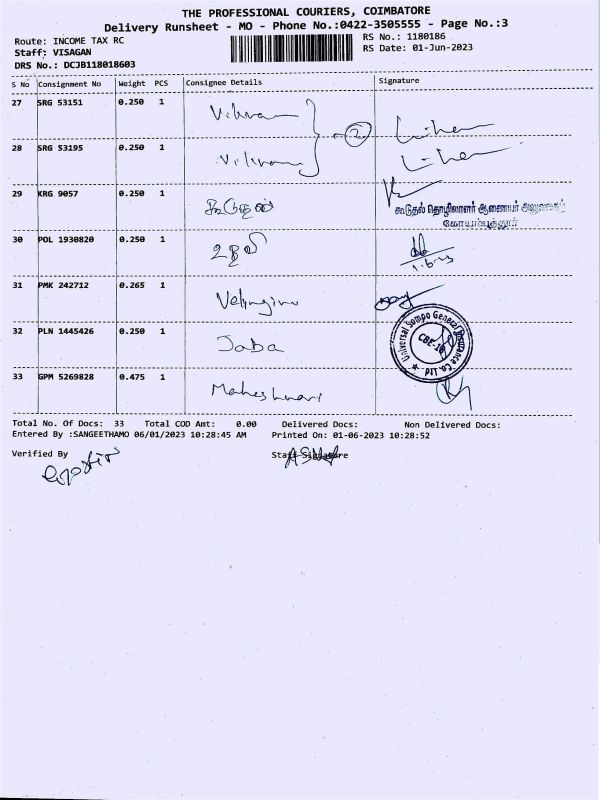 THE PROFESSIONAL COURIERS, COIMBATORE
Delivery Runsheet - MO - Phone No.:0422-3505555 - Page No.:3
Route: INCOME TAX RC
RS No.: 1180186
Staff: VISAGAN
RS Date: 01-Jun-2023
DRS No.: DCJB118018603
S No Consignment No Weight PCS Consignee Details Signature
27 SRG 53151 0.250 1 Vikram
2
28 SRG 53195 0.250 1 Vikram
29 KRG 9057 0.250 1
கூடுதல் தொழிலாளர் ஆணையர் அலுவலகம்
கோயம்புத்தூர்
30 POL 1930820 0.250 1 உதவி
31 PMK 242712 0.265 1
32 PLN 1445426 0.250 1 Jaba
Universal Sompo General Insurance Co. Ltd
CBE-18
33 GPM 5269828 0.475 1 Maheshwari
Total No. Of Docs: 33 Total COD Amt: 0.00 Delivered Docs: Non Delivered Docs:
Entered By :SANGEETHAMO 06/01/2023 10:28:45 AM Printed On: 01-06-2023 10:28:52
Verified By Staff Signature